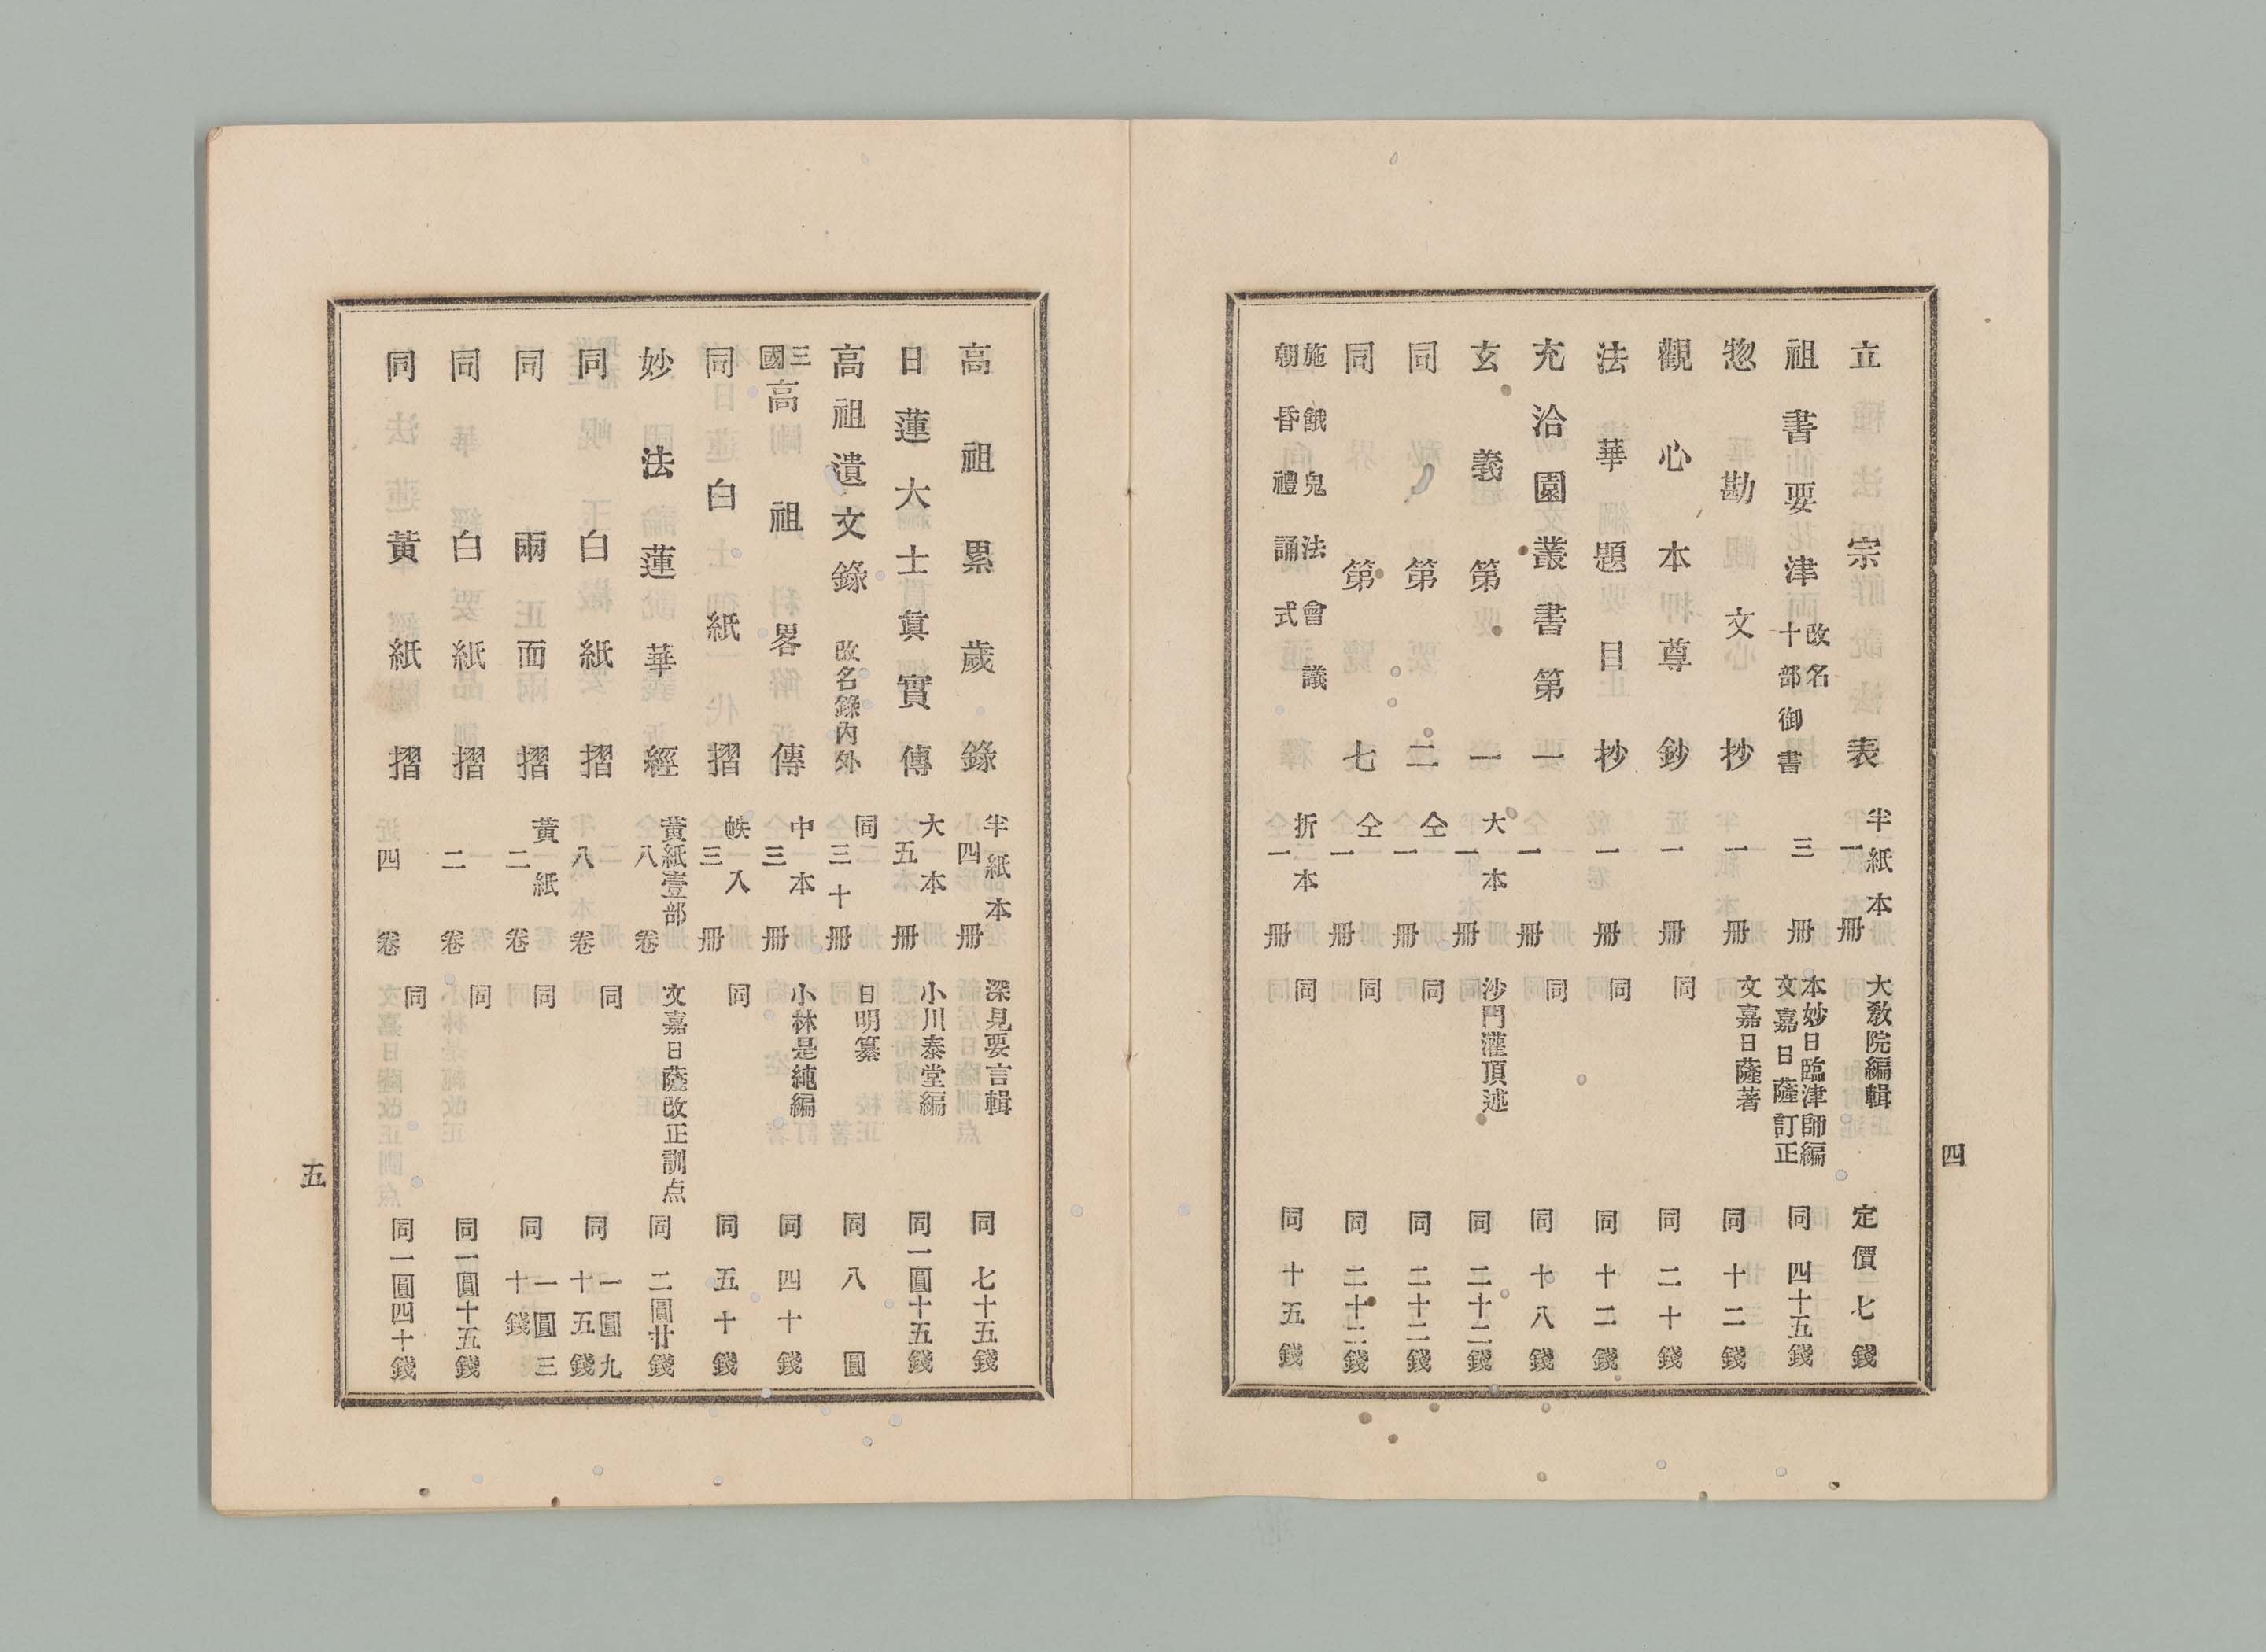 立宗表 半紙本一冊 大教院編輯 定價七錢
祖書要津 改名十部御書 三冊 本妙日臨津師編 文嘉日薩訂正 同四十五錢
惣勘文抄 一冊 文嘉日薩著 同十二錢
觀心本尊鈔 一冊 同 同二十錢
法華題目抄 一冊 同 同十二錢
充洽園叢書第一 一冊 同 同十八錢
玄義第一 大本一冊 沙門灌頂述 同二十二錢
同第二 仝一冊 同 同二十二錢
同第七 仝一冊 同 同二十二錢
施餓鬼法會議 朝昏禮誦式 折本一冊 同 同十五錢
四
高祖累歲錄 半紙本四冊 深見要言輯 同七十五錢
日蓮大士眞實傳 大本五冊 小川泰堂編 同一圓十五錢
高祖遺文錄 改名錄內外 同三十冊 日明纂 同八圓
三國高祖畧傳 中本三冊 小林是純編 同四十錢
同白紙摺 帙入三冊 同 同五十錢
妙法蓮華經 黃紙壹部八卷 文嘉日薩改正訓点 同二圓廿錢
同白紙摺 八卷 同 同一圓九十五錢
同兩面摺 黃紙二卷 同 同一圓三十錢
同白紙摺 二卷 同 同一圓十五錢
同黃紙摺 四卷 同 同一圓四十錢
五